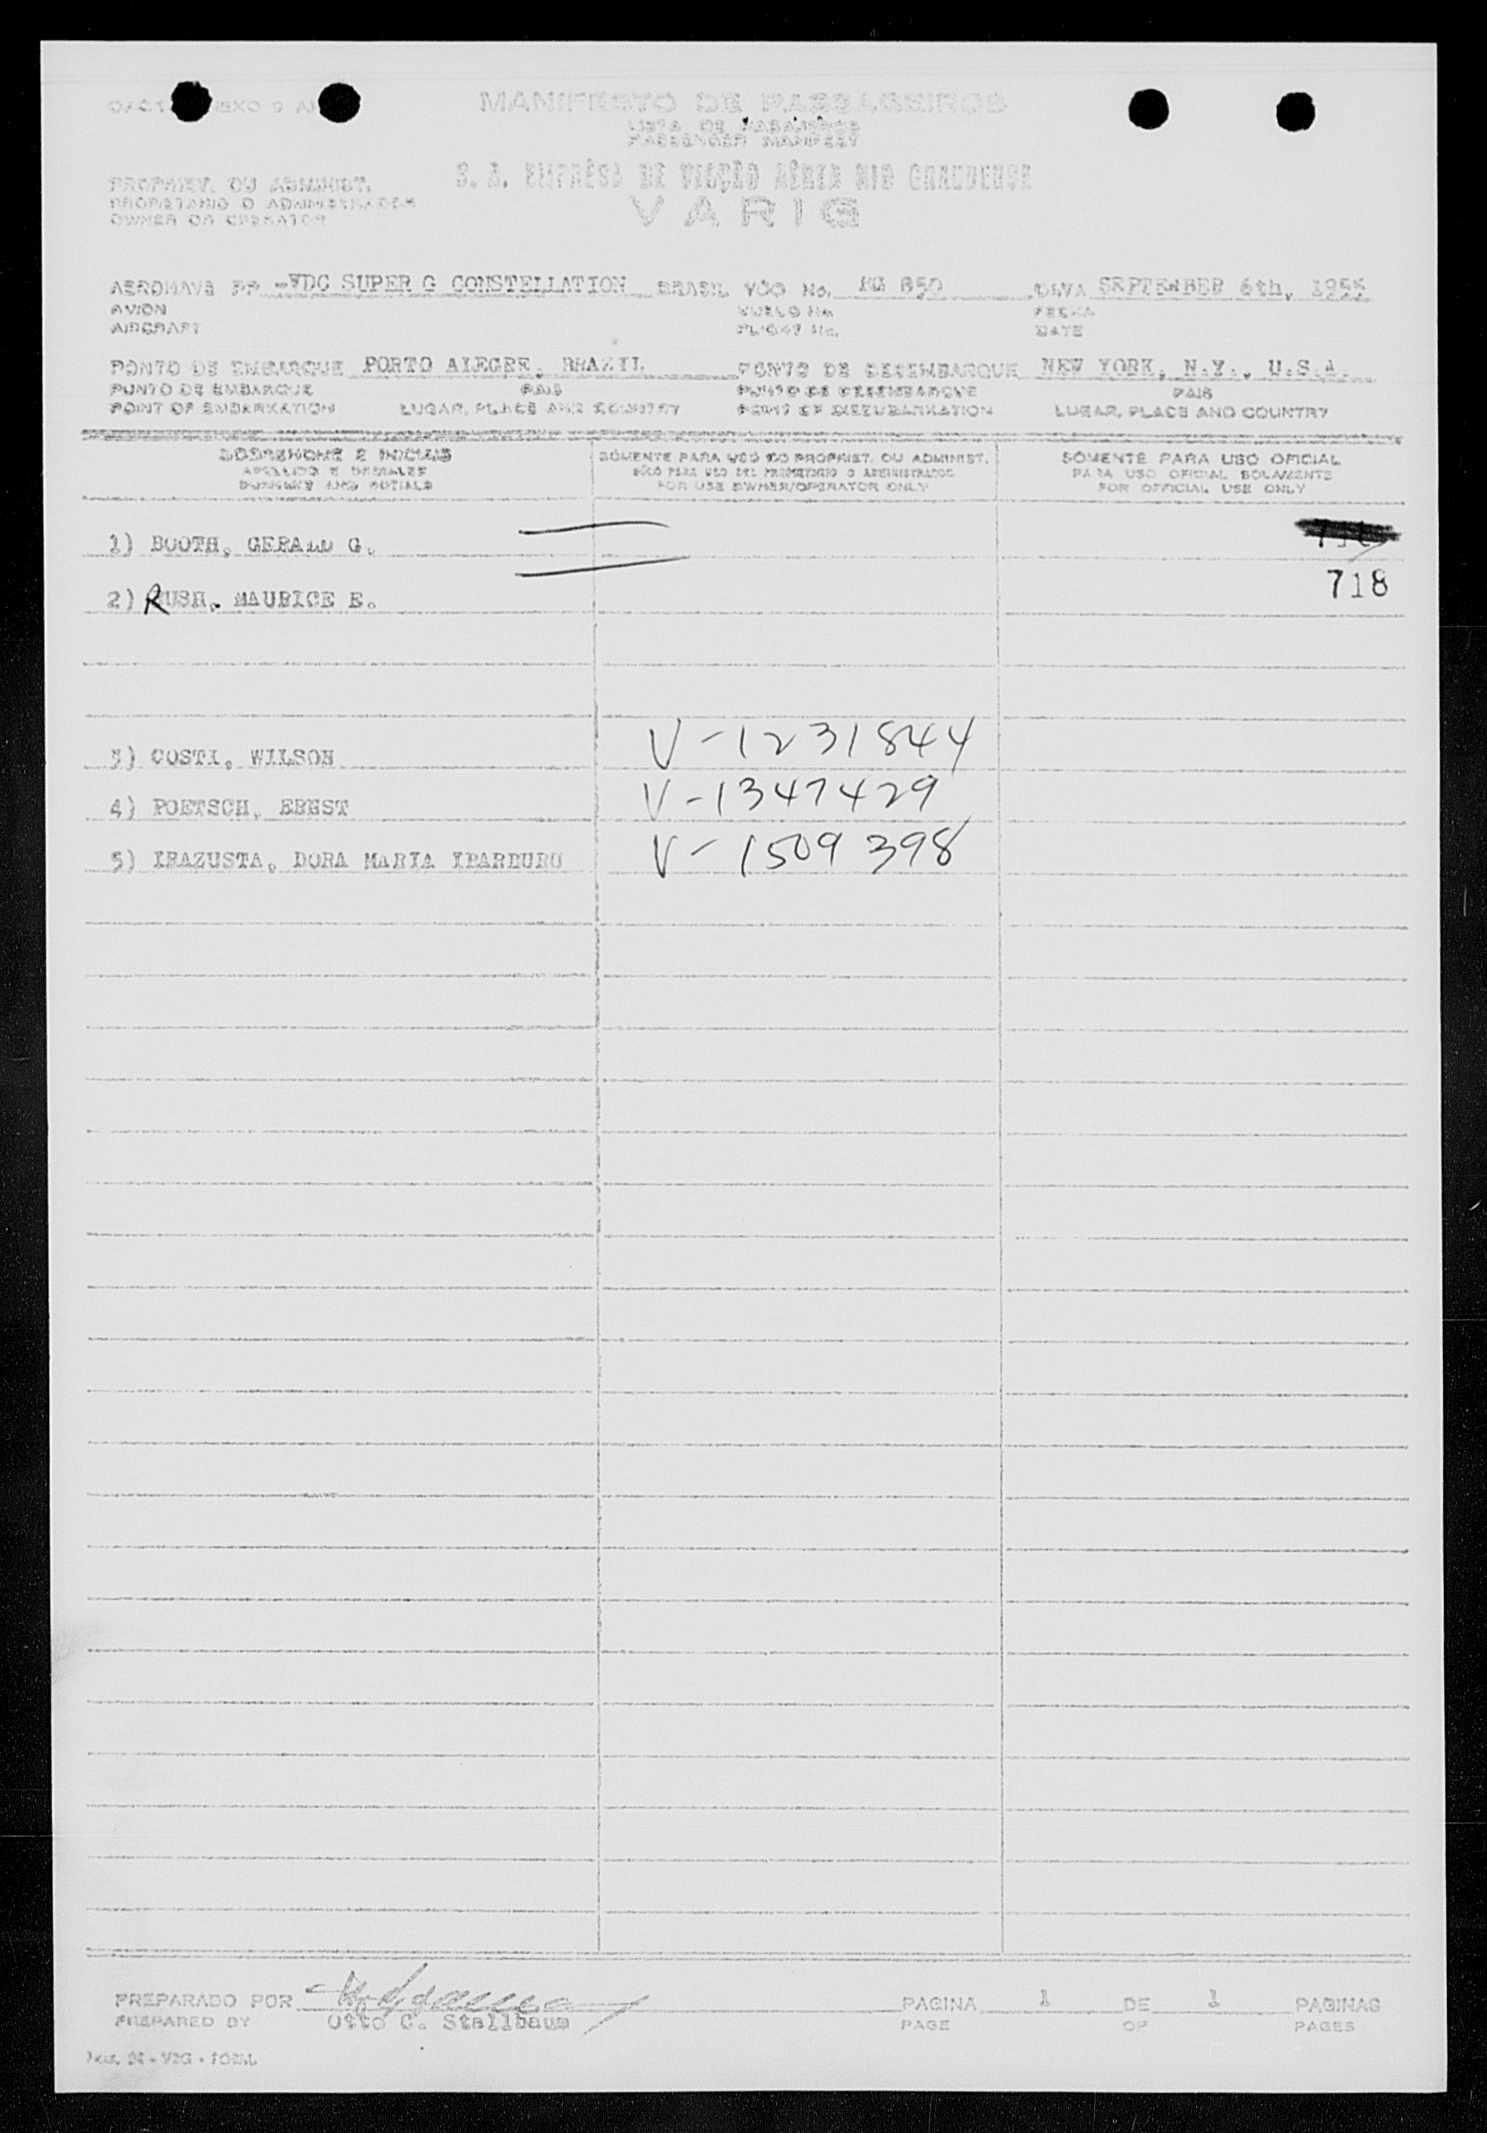 MANIFESTO DE PASSAGEIROS
LISTA DE PASAJEROS
PASSENGER MANIFEST
S. A. EMPRÊSA DE VIAÇÃO AÉREA RIO GRANDENSE
VARIG
PROPRIET. OU ADMINIST.
PROPIETARIO O ADMINISTRADOR
OWNER OR OPERATOR
AERONAVE PP -VDC SUPER G CONSTELLATION BRASIL VÔO No. 850 DATA SEPTEMBER 6th, 1955
AVION VUELO No. FECHA
AIRCRAFT FLIGHT No. DATE
PONTO DE EMBARQUE PORTO ALEGRE, BRAZIL PONTO DE DESEMBARQUE NEW YORK, N.Y., U.S.A.
PUNTO DE EMBARQUE PAIS PUNTO DE DESEMBARQUE PAIS
POINT OF EMBARKATION LUGAR, PLACE AND COUNTRY POINT OF DISEMBARKATION LUGAR, PLACE AND COUNTRY
SOBRENOME E INICIAIS SÒMENTE PARA USO DO PROPRIET. OU ADMINIST. SÒMENTE PARA USO OFICIAL
APELLIDO E INICIALES SÓLO PARA USO DEL PROPIETARIO O ADMINISTRADOR PARA USO OFICIAL SOLAMENTE
SURNAME AND INITIALS FOR USE OWNER/OPERATOR ONLY FOR OFFICIAL USE ONLY
1) BOOTH, GERALD G.
2) RUSH, MAURICE E. 718
3) COSTI, WILSON V-1231844
4) POETSCH, ERNST V-1347429
5) IRAZUSTA, DORA MARIA IPARBURU V-1509398
PREPARADO POR PAGINA 1 DE 1 PAGINAS
PREPARED BY Otto C. Stallbaum PAGE OF PAGES